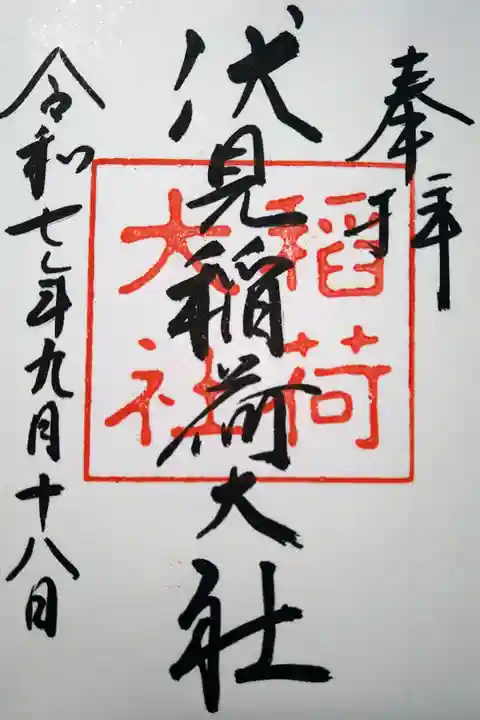 奉拝
伏見稲荷大社
稲荷
大社
令和七年九月十八日